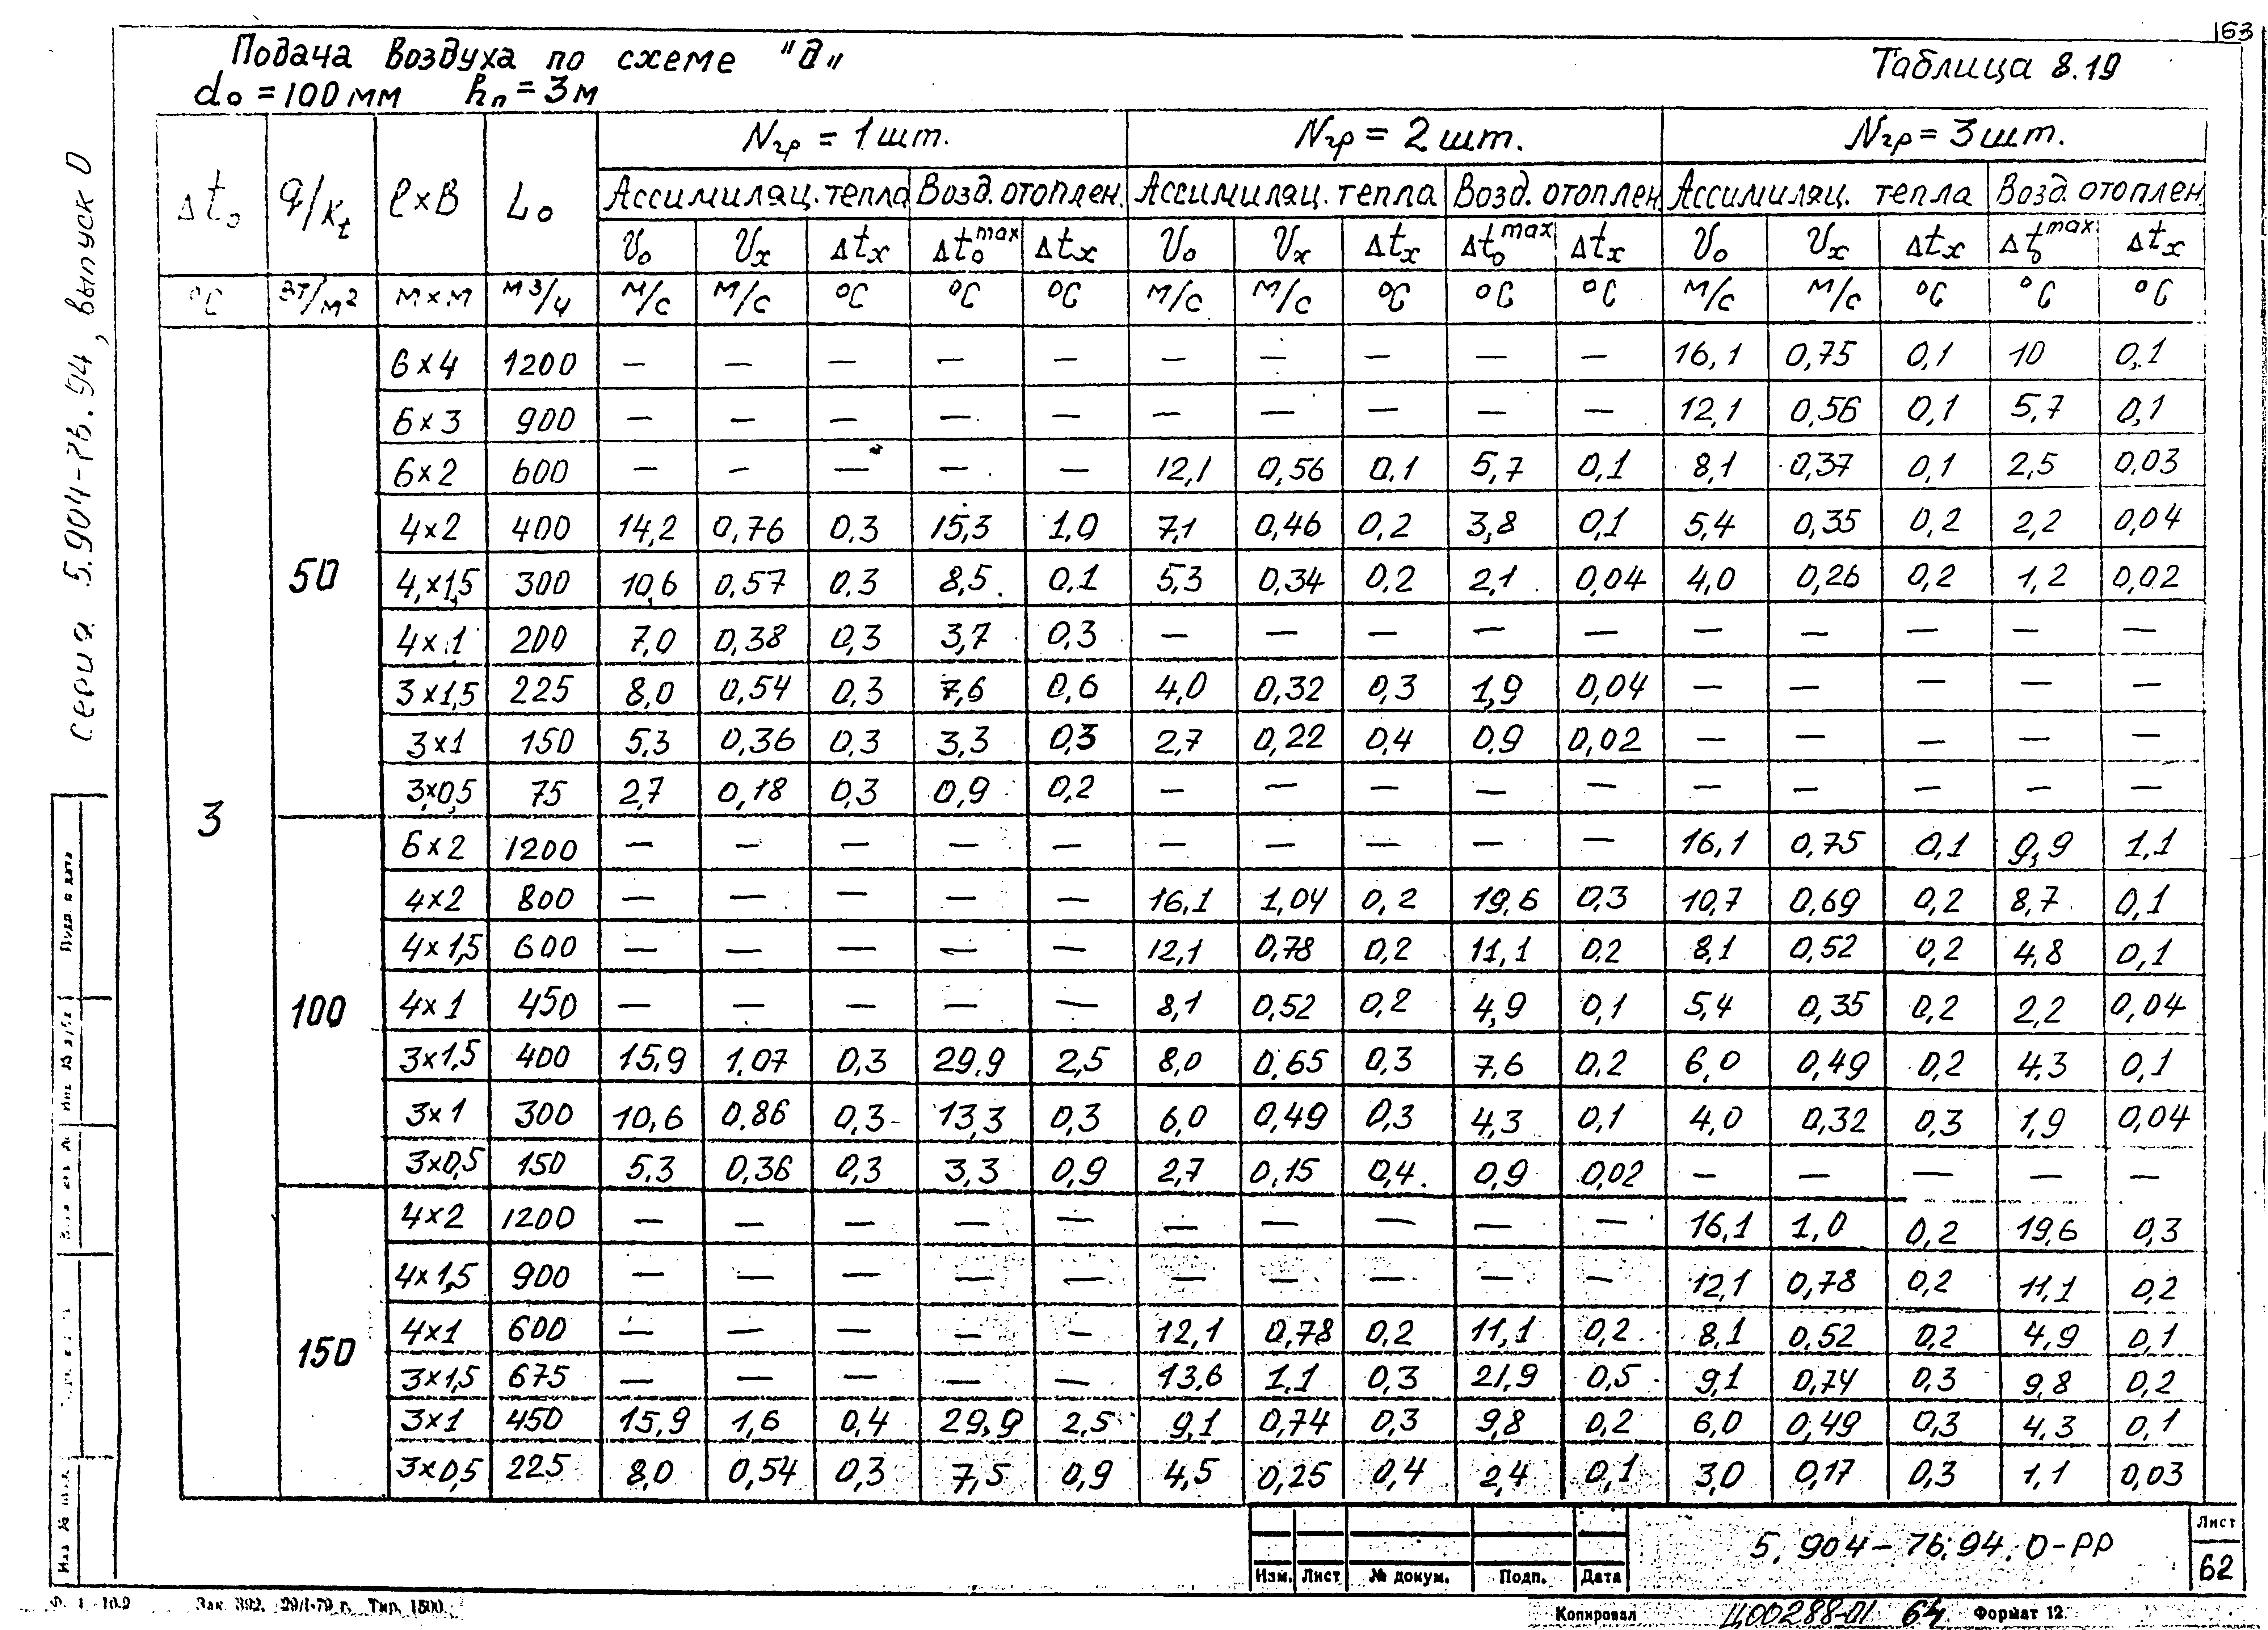 163
Подача воздуха по схеме "в"
Таблица 8.19
d₀ = 100 мм hп = 3 м
Δt₀ q/kt l×B L₀ Nгр = 1 шт. Nгр = 2 шт. Nгр = 3 шт.
Ассимиляц. тепла Возд. отоплен. Ассимиляц. тепла Возд. отоплен Ассимиляц. тепла Возд. отоплен
V₀ Vx Δtx Δt₀max Δtx V₀ Vx Δtx Δt₀max Δtx V₀ Vx Δtx Δt₀max Δtx
°C Вт/м² м×м м³/ч м/с м/с °C °C °C м/с м/с °C °C °C м/с м/с °C °C °C
3
50
6×4 1200 — — — — — — — — — — 16,1 0,75 0,1 10 0,1
6×3 900 — — — — — — — — — — 12,1 0,56 0,1 5,7 0,1
6×2 600 — — — — — 12,1 0,56 0,1 5,7 0,1 8,1 0,37 0,1 2,5 0,03
4×2 400 14,2 0,76 0,3 15,3 1,0 7,1 0,46 0,2 3,8 0,1 5,4 0,35 0,2 2,2 0,04
4×1,5 300 10,6 0,57 0,3 8,5 0,1 5,3 0,34 0,2 2,1 0,04 4,0 0,26 0,2 1,2 0,02
4×1 200 7,0 0,38 0,3 3,7 0,3 — — — — — — — — — —
3×1,5 225 8,0 0,54 0,3 7,6 0,6 4,0 0,32 0,3 1,9 0,04 — — — — —
3×1 150 5,3 0,36 0,3 3,3 0,3 2,7 0,22 0,4 0,9 0,02 — — — — —
3×0,5 75 2,7 0,18 0,3 0,9 0,2 — — — — — — — — — —
100
6×2 1200 — — — — — — — — — — 16,1 0,75 0,1 9,9 1,1
4×2 800 — — — — — 16,1 1,04 0,2 19,6 0,3 10,7 0,69 0,2 8,7 0,1
4×1,5 600 — — — — — 12,1 0,78 0,2 11,1 0,2 8,1 0,52 0,2 4,8 0,1
4×1 450 — — — — — 8,1 0,52 0,2 4,9 0,1 5,4 0,35 0,2 2,2 0,04
3×1,5 400 15,9 1,07 0,3 29,9 2,5 8,0 0,65 0,3 7,6 0,2 6,0 0,49 0,2 4,3 0,1
3×1 300 10,6 0,86 0,3 13,3 0,3 6,0 0,49 0,3 4,3 0,1 4,0 0,32 0,3 1,9 0,04
3×0,5 150 5,3 0,36 0,3 3,3 0,9 2,7 0,15 0,4 0,9 0,02 — — — — —
150
4×2 1200 — — — — — — — — — — 16,1 1,0 0,2 19,6 0,3
4×1,5 900 — — — — — — — — — — 12,1 0,78 0,2 11,1 0,2
4×1 600 — — — — — 12,1 0,78 0,2 11,1 0,2 8,1 0,52 0,2 4,9 0,1
3×1,5 675 — — — — — 13,6 1,1 0,3 21,9 0,5 9,1 0,74 0,3 9,8 0,2
3×1 450 15,9 1,6 0,4 29,9 2,5 9,1 0,74 0,3 9,8 0,2 6,0 0,49 0,3 4,3 0,1
3×0,5 225 8,0 0,54 0,3 7,5 0,9 4,5 0,25 0,4 2,4 0,1 3,0 0,17 0,3 1,1 0,03
серия 5.904-76.94, выпуск 0
Изм. Лист № докум. Подп. Дата
5.904-76.94.0-РР
Лист
62
Зак. 392. 29/I-79 г. Тир. 1500.
Копировал Ц00288-01 64 Формат 12